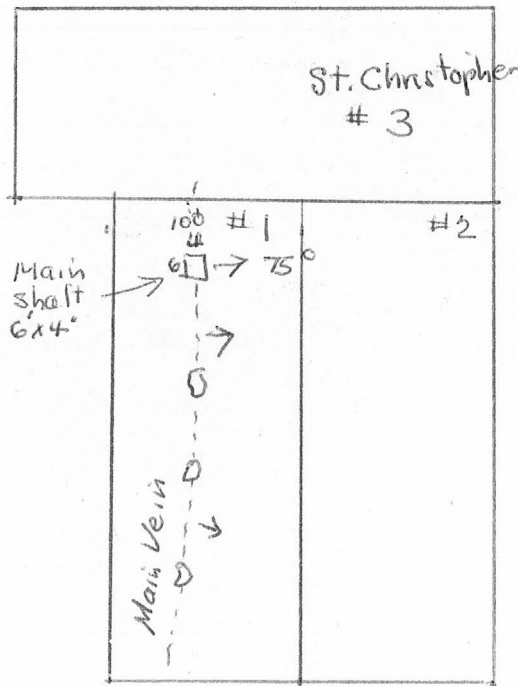 St. Christopher
# 3
100 # 1
#2
4
6 75°
Main
shaft
6'x4'
Main Vein